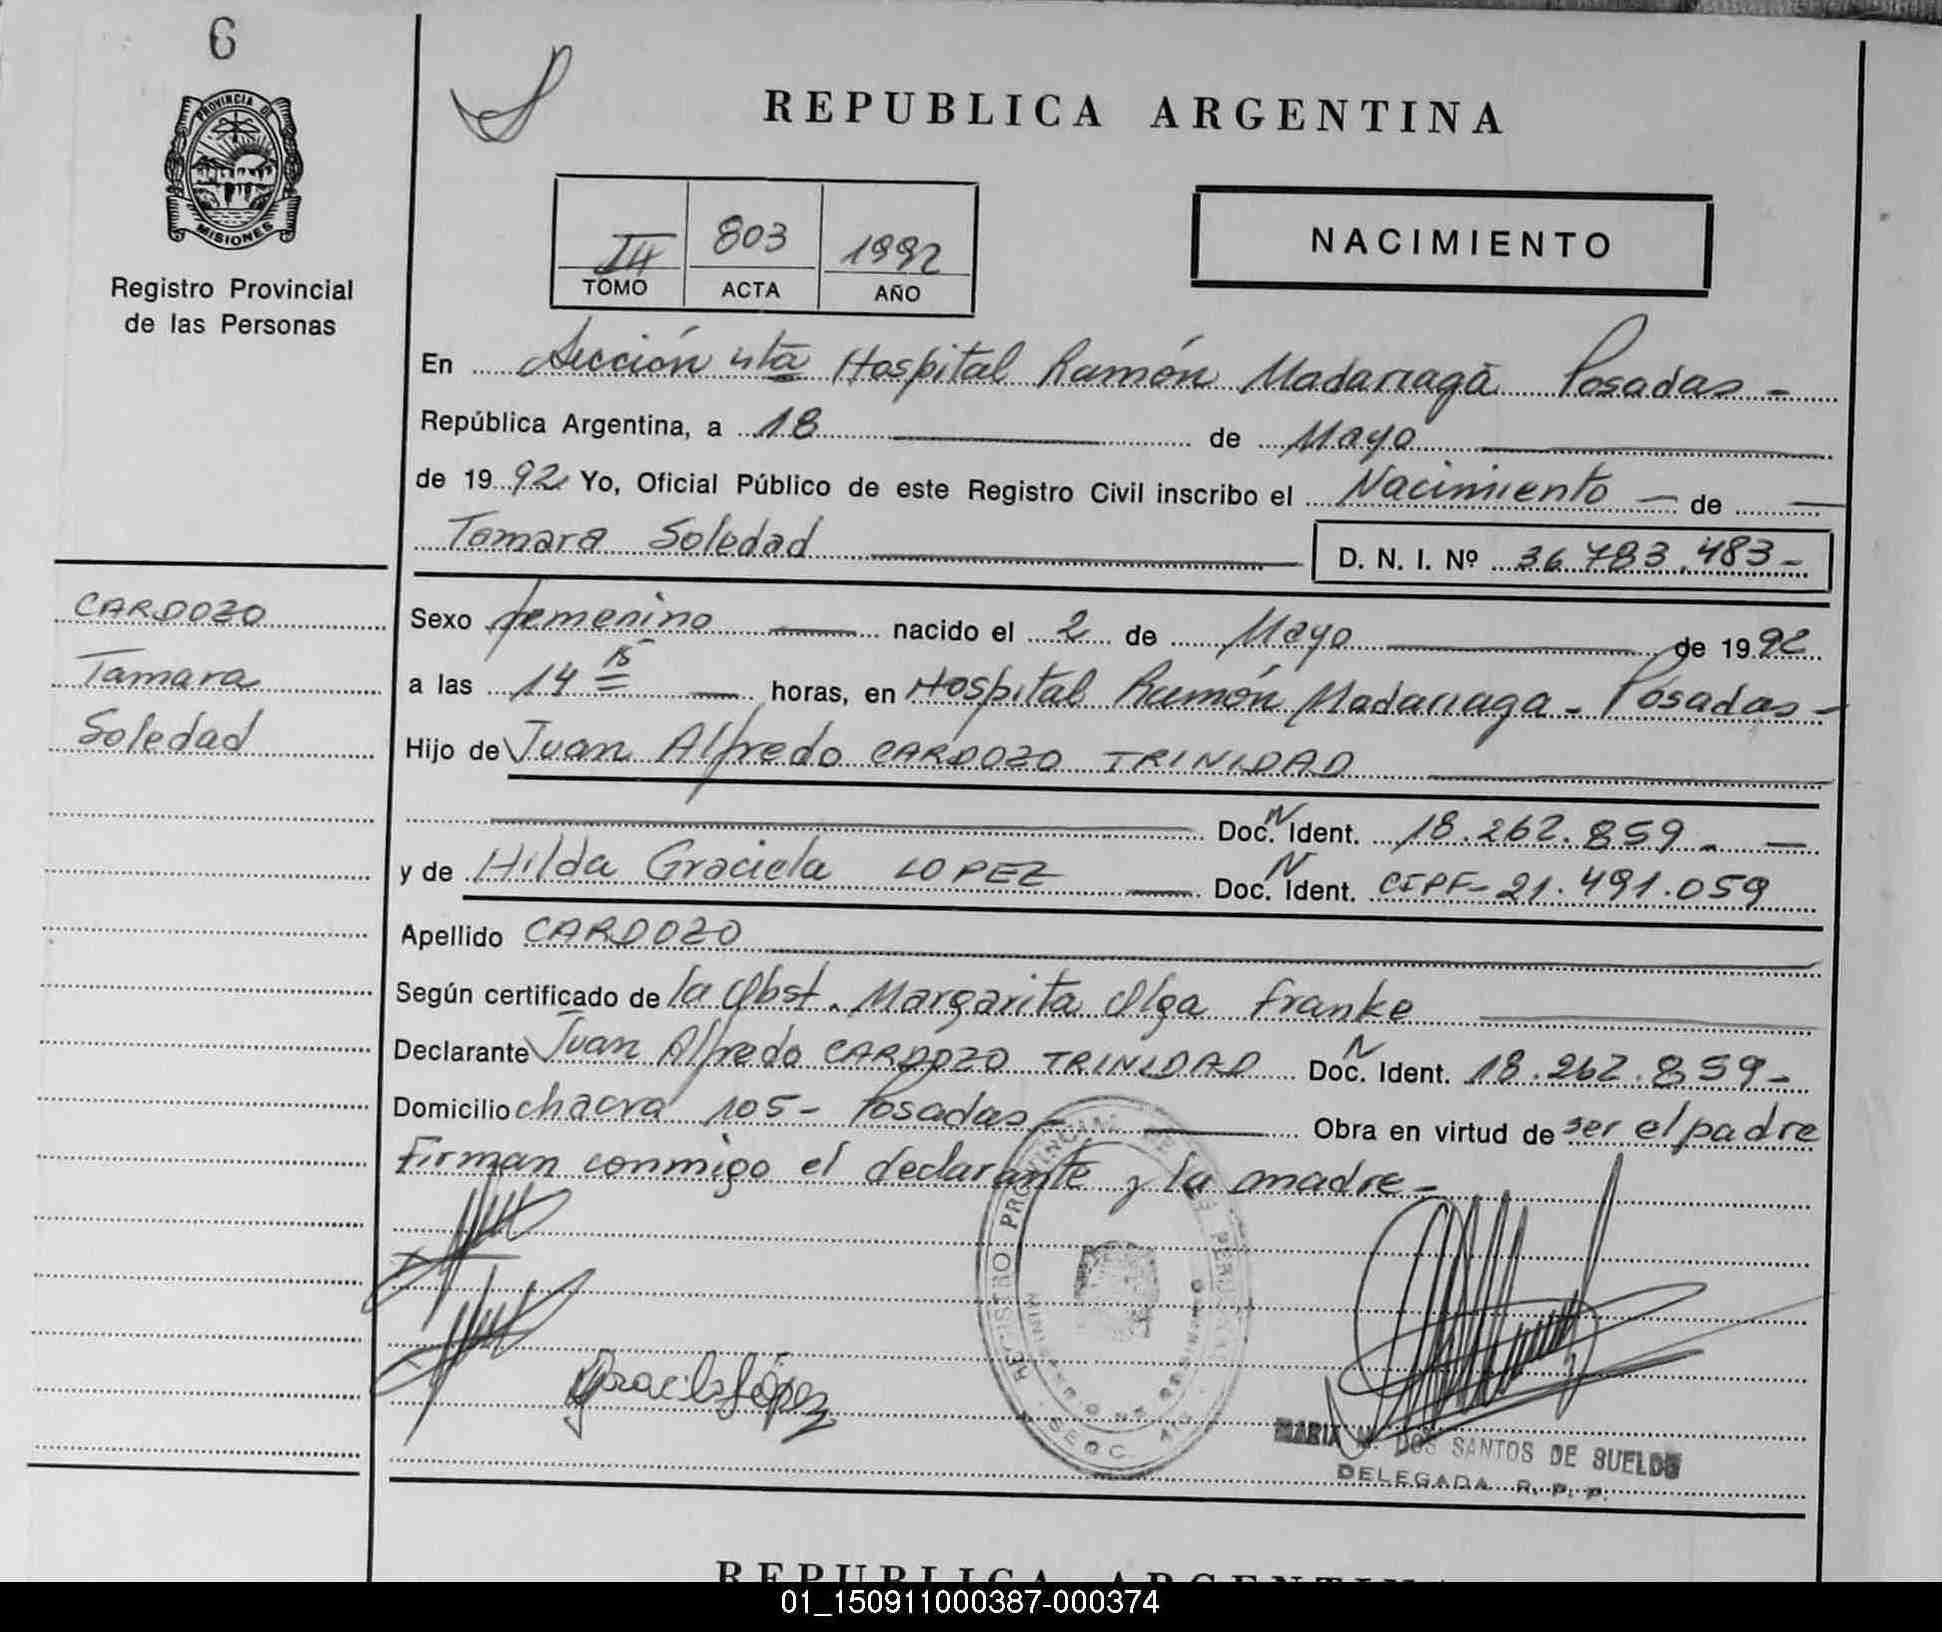 6
PROVINCIA DE
MISIONES
Registro Provincial
de las Personas
REPUBLICA ARGENTINA
III 803 1992
TOMO ACTA AÑO
NACIMIENTO
En Sección 4ta Hospital Ramón Madariaga Posadas -
República Argentina, a 18 de Mayo
de 1992 Yo, Oficial Público de este Registro Civil inscribo el Nacimiento - de
Tamara Soledad D. N. I. Nº 36.783.483-
CARDOZO
Tamara
Soledad
Sexo femenino nacido el 2 de Mayo de 1992
a las 14 15 horas, en Hospital Ramón Madariaga - Posadas -
Hijo de Juan Alfredo CARDOZO TRINIDAD
Doc. N Ident. 18.262.859 -
y de Hilda Graciela LOPEZ Doc. N Ident. CIPF- 21.491.059
Apellido CARDOZO
Según certificado de la Obst. Margarita Olga Franke
Declarante Juan Alfredo CARDOZO TRINIDAD Doc. N Ident. 18.262.859-
Domicilio chacra 105- Posadas - Obra en virtud de ser el padre
Firman conmigo el declarante y la madre -
REGISTRO PROVINCIAL DE LAS PERSONAS
Graciela López
MARIA M. DOS SANTOS DE SUELDO
DELEGADA R. P. P.
REPUBLICA ARGENTINA
01_150911000387-000374